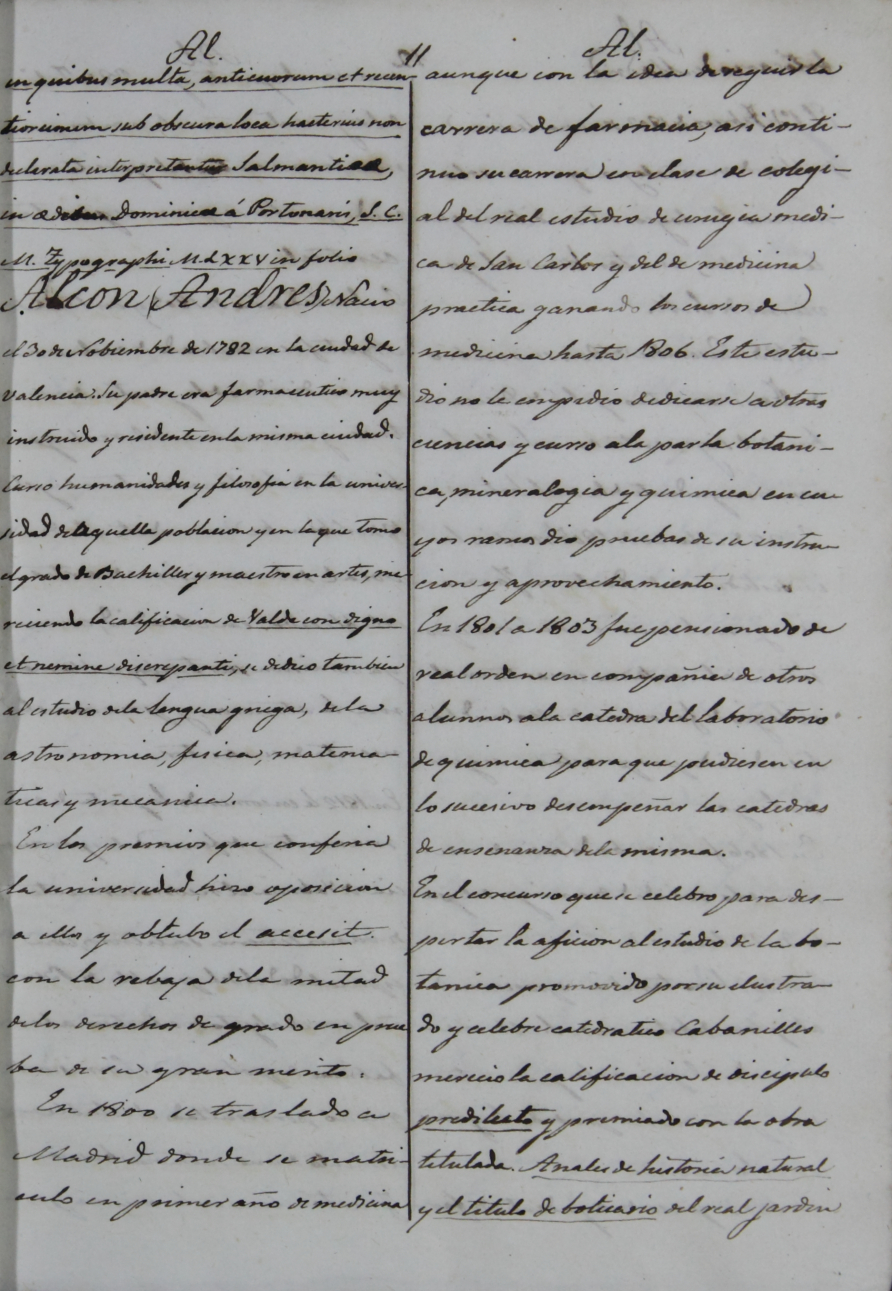 Al.
11
Al.
in quibus multa, anticuorum et recen-
tiorum sub obscura loca hacterius non
declarata interpretantur Salmanticae,
in aedibus Dominici á Portonariis, S. C.
M. Typographi M.d.xxv in folio
Alcon (Andres) Nacio
el 30 de Nobiembre de 1782 en la ciudad de
Valencia. Su padre era farmaceutico muy
instruido y residente en la misma ciudad.
Curso humanidades y filosofia en la univer-
sidad de aquella poblacion y en la que tomo
el grado de Bachiller y maestro en artes, me-
reciendo la calificacion de Valde condigno
et nemine discrepanti, se dedico tambien
al estudio de la lengua griega, de la
astronomia, fisica, matema-
ticas y mecanica.
En los premios que conferia
la universidad hizo oposicion
a ellos y obtubo el accesit.
con la rebaja de la mitad
de los derechos de grado en prue
ba de su gran merito.
En 1800 se traslado a
Madrid donde se matri-
culo en primer año de medicina
aunque con la idea de seguir la
carrera de farmacia, asi conti-
nuo su carrera en clase de colegi-
al del real estudio de cirugia medi-
ca de San Carlos y del de medicina
practica ganando los cursos de
medicina hasta 1806. Este estu-
dio no le impidio dedicarse a otras
ciencias y curso a la par la botani-
ca, mineralogia y quimica en cu-
yos ramos dio pruebas de su instru-
cion y aprovechamiento.
En 1801 a 1803 fue pensionado de
real orden en compañia de otros
alunnos a la catedra del laboratorio
de quimica para que pudiesen en
lo sucesivo desempeñar las catedras
de ensenanza de la misma.
En el concurso que se celebro para des-
pertar la aficion al estudio de la bo-
tanica promovido por su ilustra-
do y celebre catedratico Cabanilles
merecio la calificacion de discipulo
predilecto y premiado con la obra
titulada. Anales de historia natural
y el titulo de boticario del real jardin